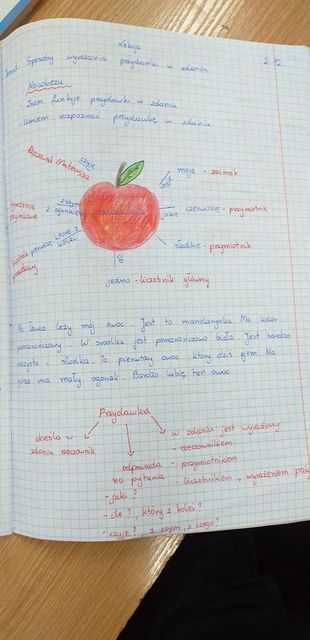 Lekcja
Temat: Sposoby wyrażania przydawki w zdaniu. 2.12
Nacobezu
- Znam funkcje przydawki w zdaniu
- Umiem rozpoznać przydawkę w zdaniu
Rzeczownik Mateusza czyje
moje - zaimek
jakie
z czym
z ogonkiem
jakie czerwone - przymiotnik
które z kolei
pierwsze
słodkie - przymiotnik
ile
jedno - liczebnik główny
Na ławce leży mój owoc. Jest to mandarynka. Ma kolor
pomarańczowy. W środku jest pomarańczowo biała. Jest bardzo
soczysta i słodka. To pierwszy owoc, który dziś zjem. Na
górze ma mały ogonek. Bardzo lubię ten owoc
Przydawka
określa w
zdaniu rzeczownik
odpowiada
na pytania
- jaki?
- ile?, który z kolei?
- czyje?, z czym, z czego?
w zdaniu jest wyrażony
- rzeczownikiem
- przymiotnikiem
- liczebnikiem, wyrażeniem